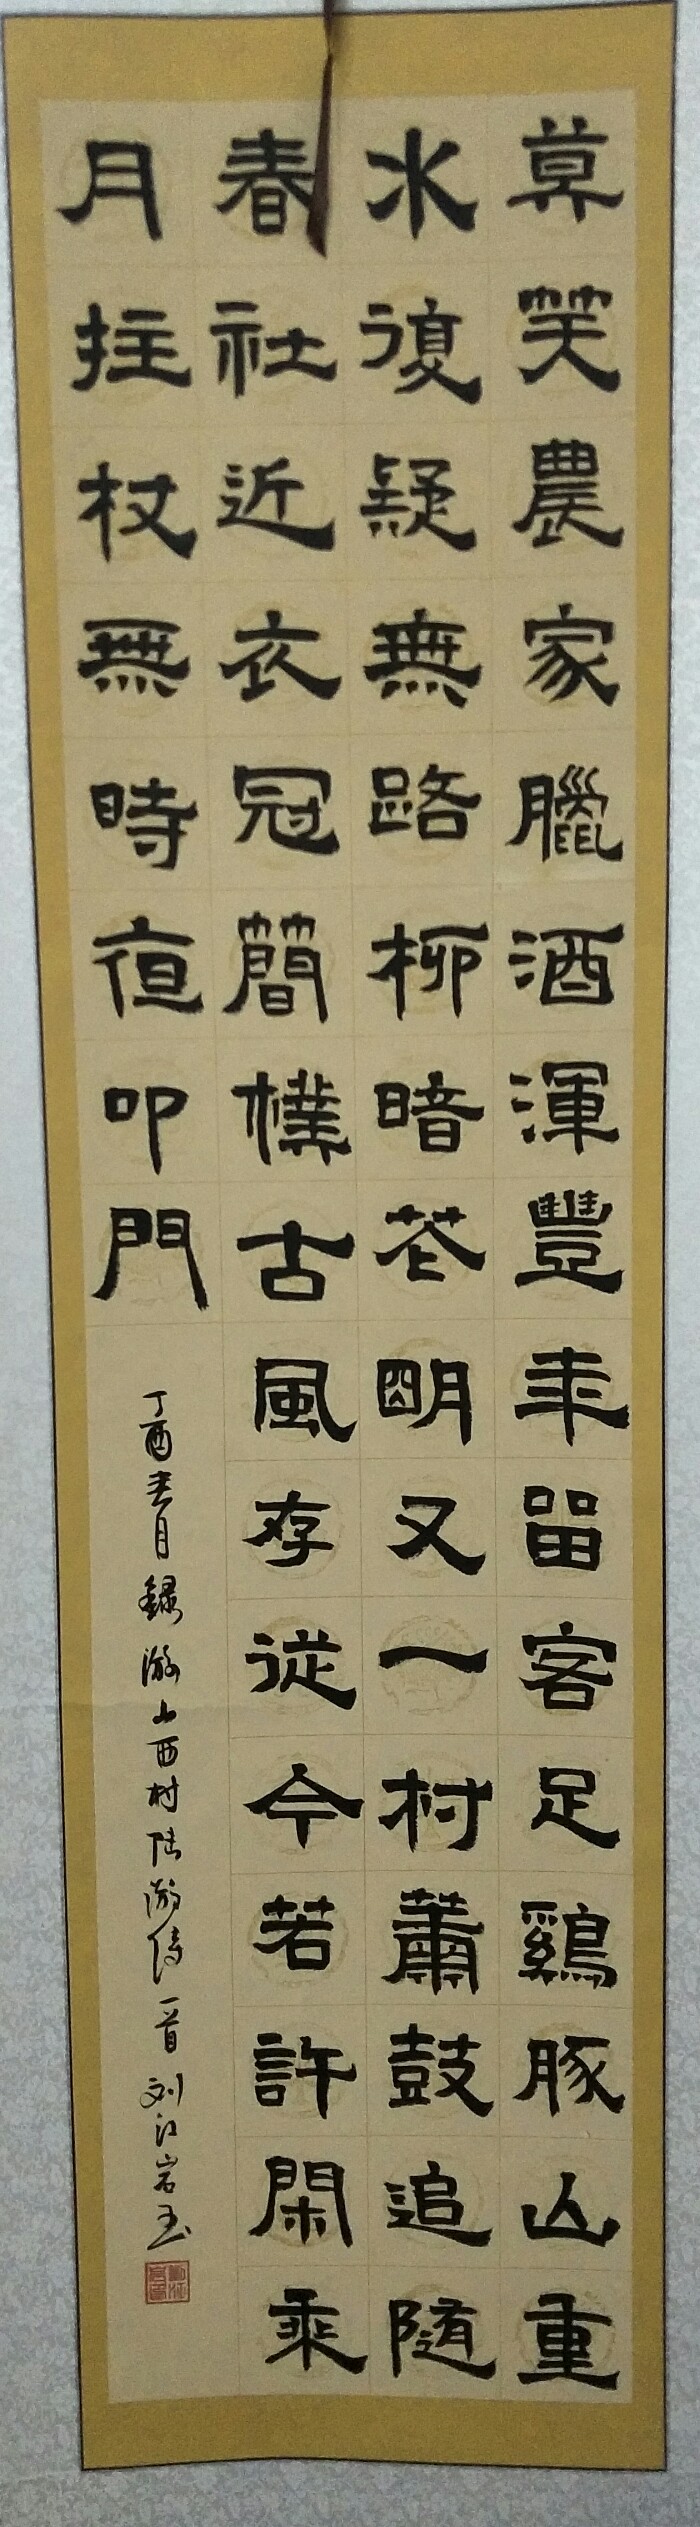 莫笑農家臘酒渾豐年留客足鷄豚山重
水復疑無路柳暗花明又一村蕭鼓追隨
春社近衣冠簡樸古風存從今若許閑乘
月拄杖無時夜叩門
丁酉春月錄游山西村陆游诗一首刘江岩